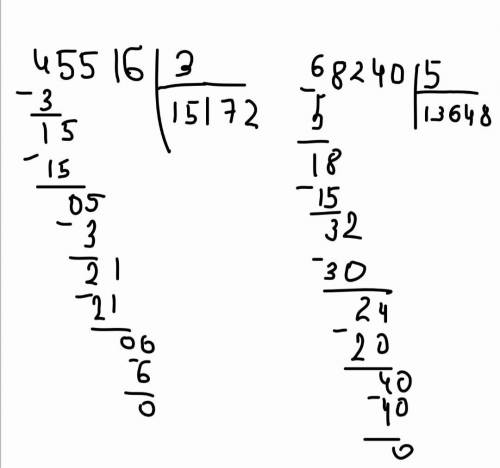 45516 3
- 3 15172
15
- 15
05
- 3
21
- 21
06
- 6
0
68240 5
- 5 13648
18
- 15
32
- 30
24
- 20
40
- 40
0